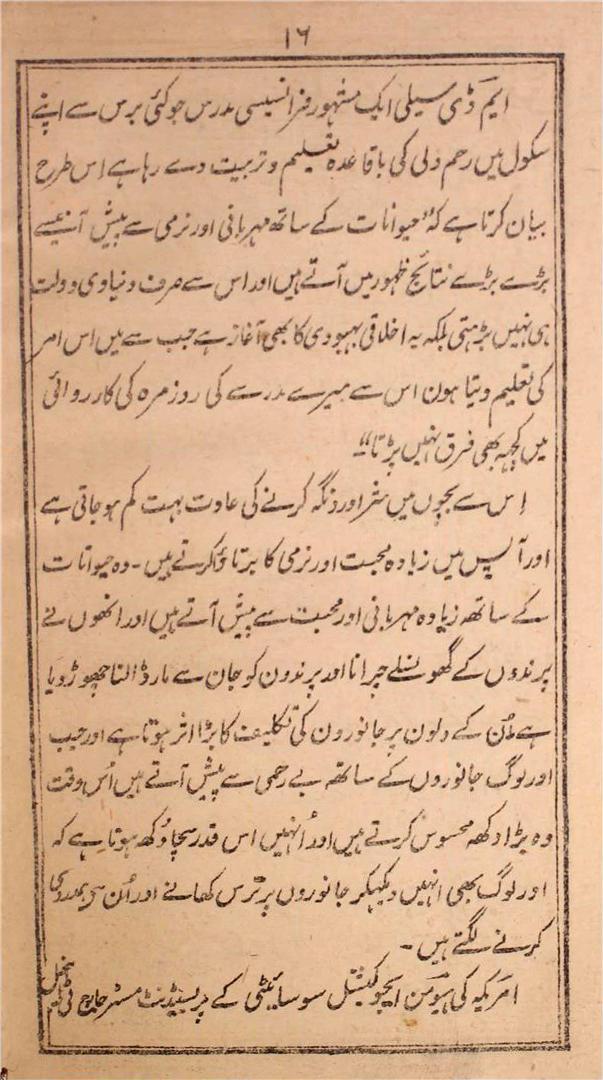 ۱۶
ایم ڈی سیلی ایک مشہور فرانسیسی مدرس جو کئی برس سے اپنے
سکول میں رحم دلی کی باقاعدہ تعلیم و تربیت دے رہا ہے اس طرح
بیان کرتا ہے کہ "حیوانات کے ساتھ مہربانی اور نرمی سے پیش آنیسے
بڑے بڑے نتائج ظہور میں آتے ہیں اور اس سے صرف دنیاوی دولت
ہی نہیں بڑہتی بلکہ یہ اخلاقی بہبودی کا بھی آغاز ہے جب سے میں اس امر
کی تعلیم دیتا ہون اس سے میرے مدرسے کی روزمرہ کی کارروائی
میں کچہہ بھی فرق نہیں پڑتا"
اِس سے بچوں میں شر اور دنگہ کرنے کی عادت بہت کم ہو جاتی ہے
اور آپس میں زیادہ محبت اور نرمی کا برتاؤ کرتے ہیں ۔ وہ حیوانات
کے ساتھ زیادہ مہربانی اور محبت سے پیش آتے ہیں اور انھوں نے
پرندوں کے گھونسلے چرانا اور پرندون کو جان سے مار ڈالنا چھوڑ دیا
ہے اُن کے دلون پر جانورون کی تکلیف کا بڑا اثر ہوتا ہے اور جب
اور لوگ جانوروں کے ساتھ بے رحمی سے پیش آتے ہیں اُس وقت
وہ بڑا دکھ محسوس کرتے ہیں اور اُنہیں اس قدر سچا دُکھ ہوتا ہے کہ
اور لوگ بھی انہیں دیکہکر جانوروں پر ترس کھانے اور اُن سے ہمدردی
کرنے لگتے ہیں ۔
امریکہ کی ہیومن ایجوکیشنل سوسائیٹی کے پریسیڈنٹ مسٹر جارج ٹی